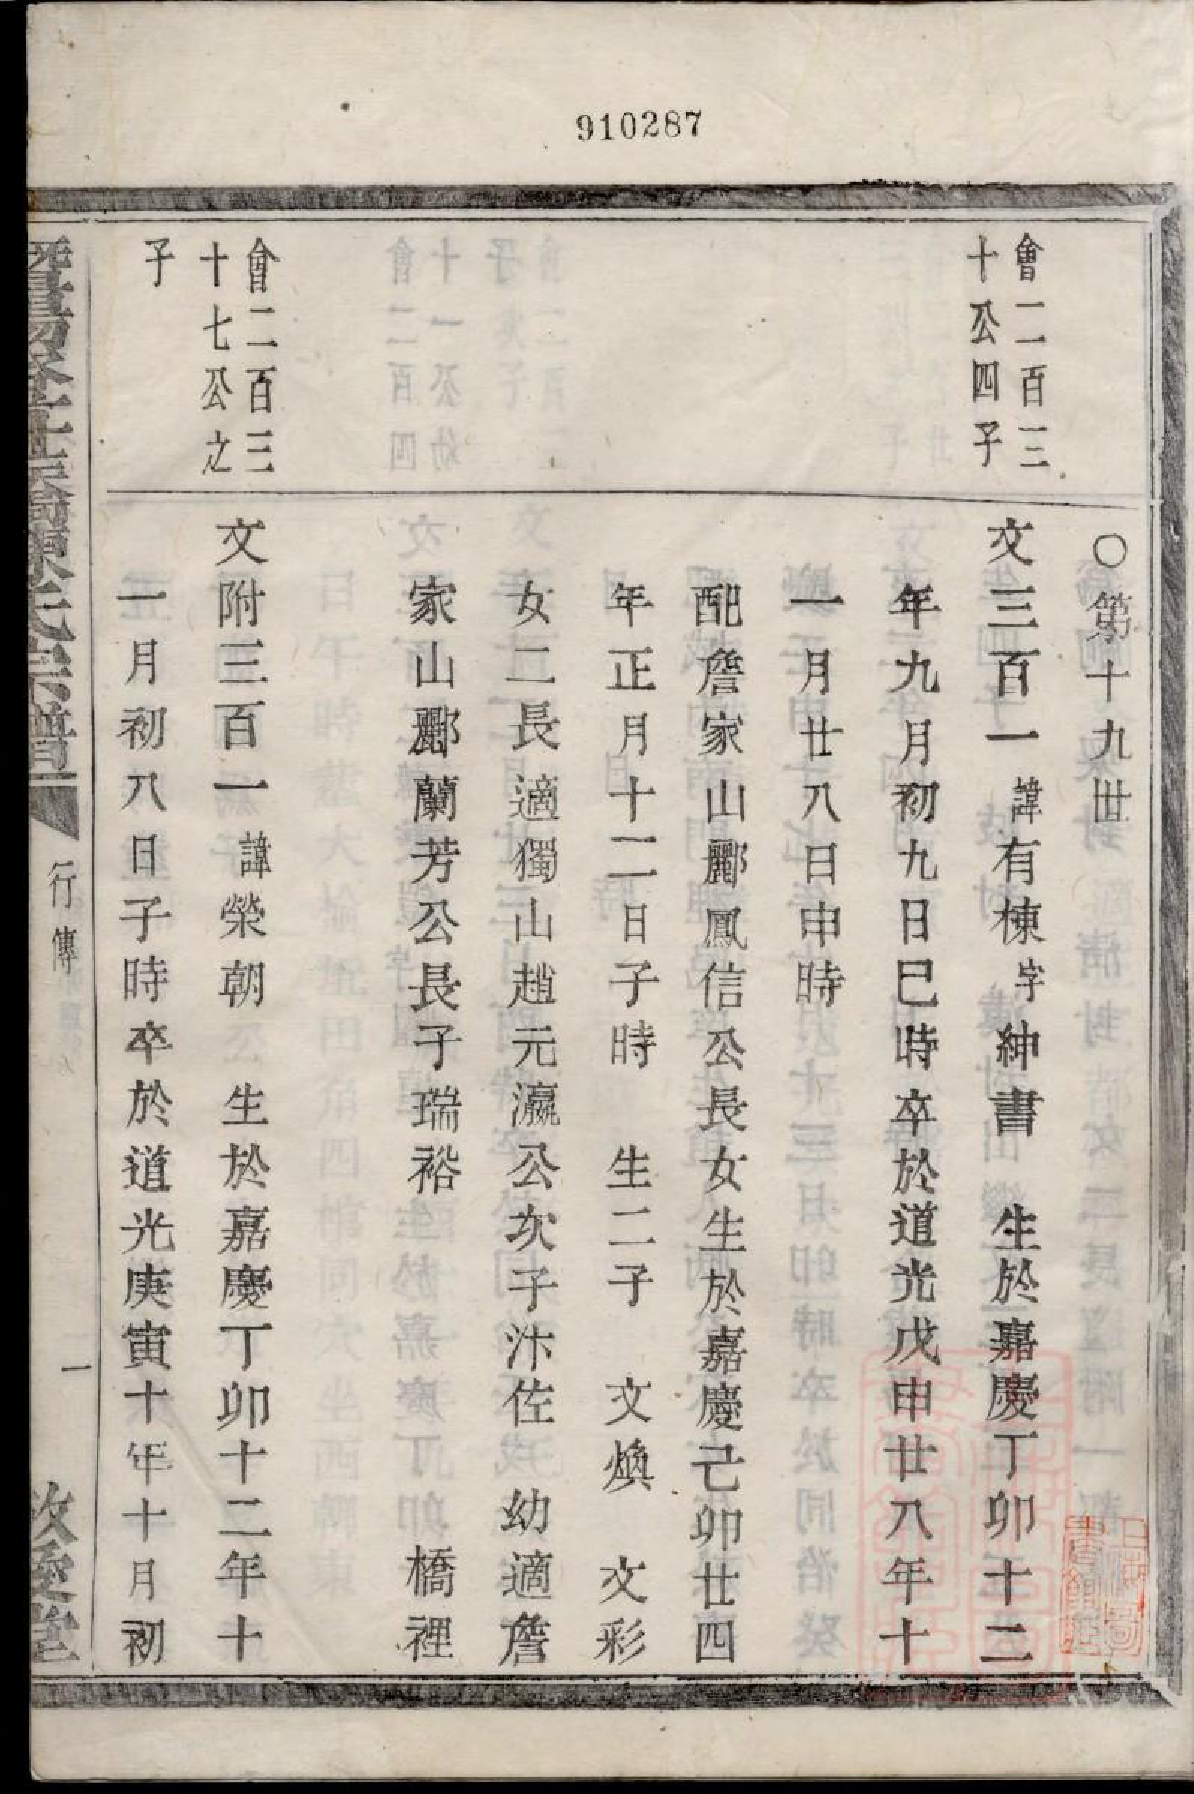 910287
會二百三
十公四子
○第十九世
文三百一諱有棟字紳書 生於嘉慶丁卯十二
年九月初九日巳時卒於道光戊申廿八年十
一月廿八日申時
配詹家山酈鳳信公長女生於嘉慶己卯廿四
年正月十二日子時 生二子 文煥 文彩
女二長適獨山趙元瀛公次子汴佐 幼適詹
家山酈蘭芳公長子瑞裕 橋裡
會二百三
十七公之
子
文附三百一諱榮朝 生於嘉慶丁卯十二年十
一月初八日子時卒於道光庚寅十年十月初
陳氏宗譜
行傳
一
敦愛堂